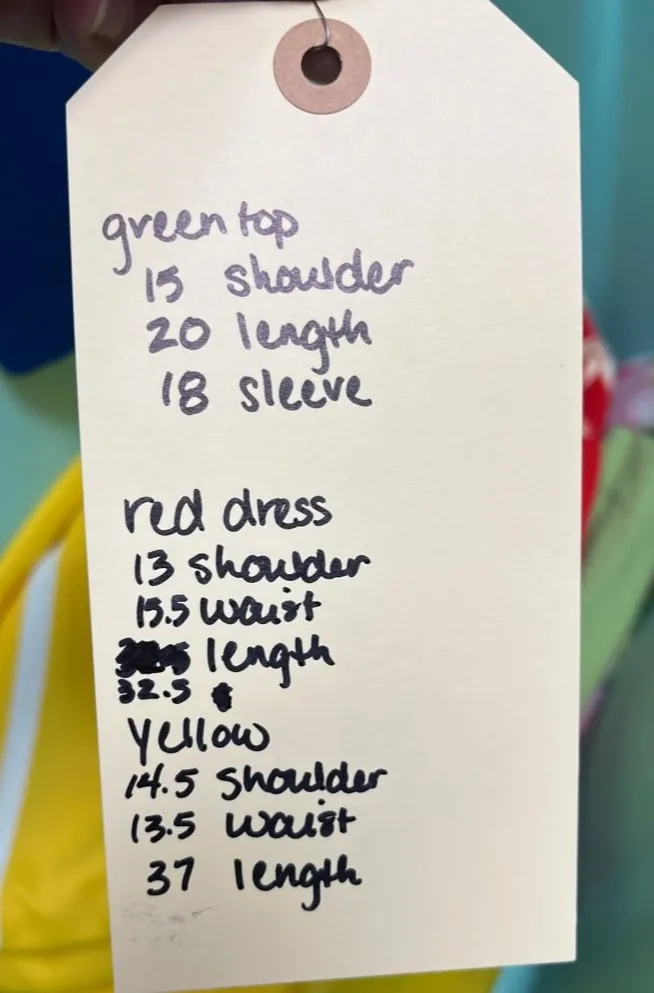 green top
15 shoulder
20 length
18 sleeve
red dress
13 shoulder
15.5 waist
length
32.5
yellow
14.5 shoulder
13.5 waist
37 length